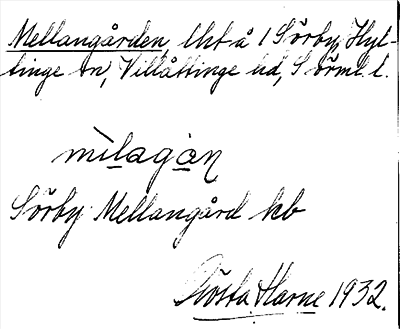 Mellangården, lht å 1 Sörby, Hyl-
tinge sn, Villåttinge hd, Sörml. l.
mìlagan
Sörby Mellangård kb
Gösta Harne 1932.